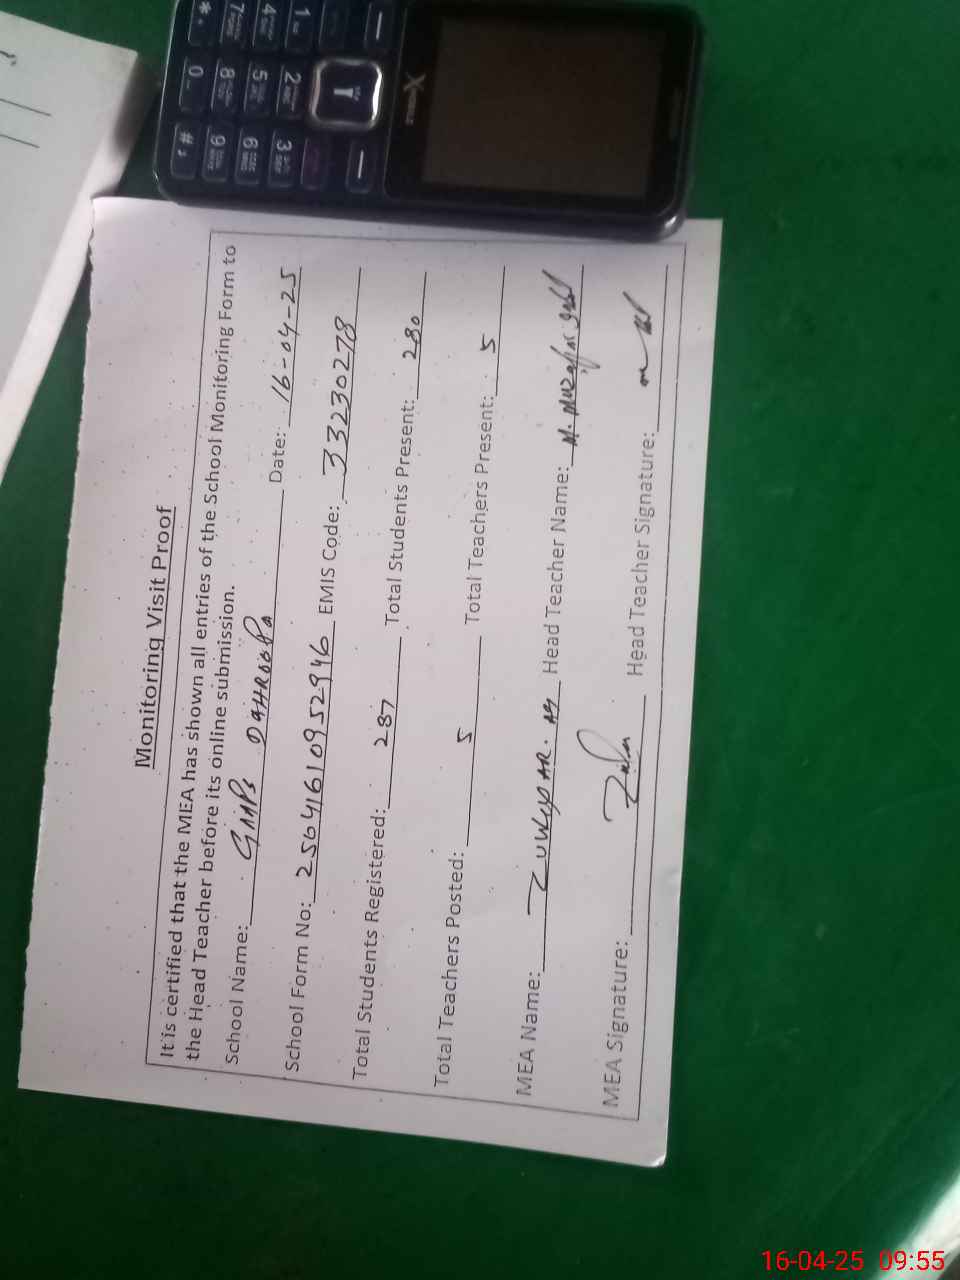 Monitoring Visit Proof
It is certified that the MEA has shown all entries of the School Monitoring Form to
the Head Teacher before its online submission.
School Name: GMMPS Date: 16-04-25
School Form No: 25641610952946 EMIS Code: 33230278
Total Students Registered: 287 Total Students Present: 280
Total Teachers Posted: 5 Total Teachers Present: 5
MEA Name: Head Teacher Name: M. Muzaffar Iqbal
MEA Signature: Head Teacher Signature:
16-04-25 09:55